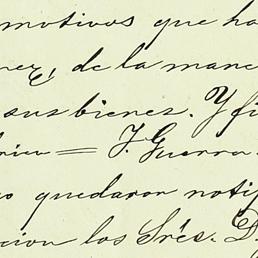 motivos que ha
nez, de la mane
sus bienes. Y fi
= J. Guerra.
quedaron notif
cion los Srés. D.